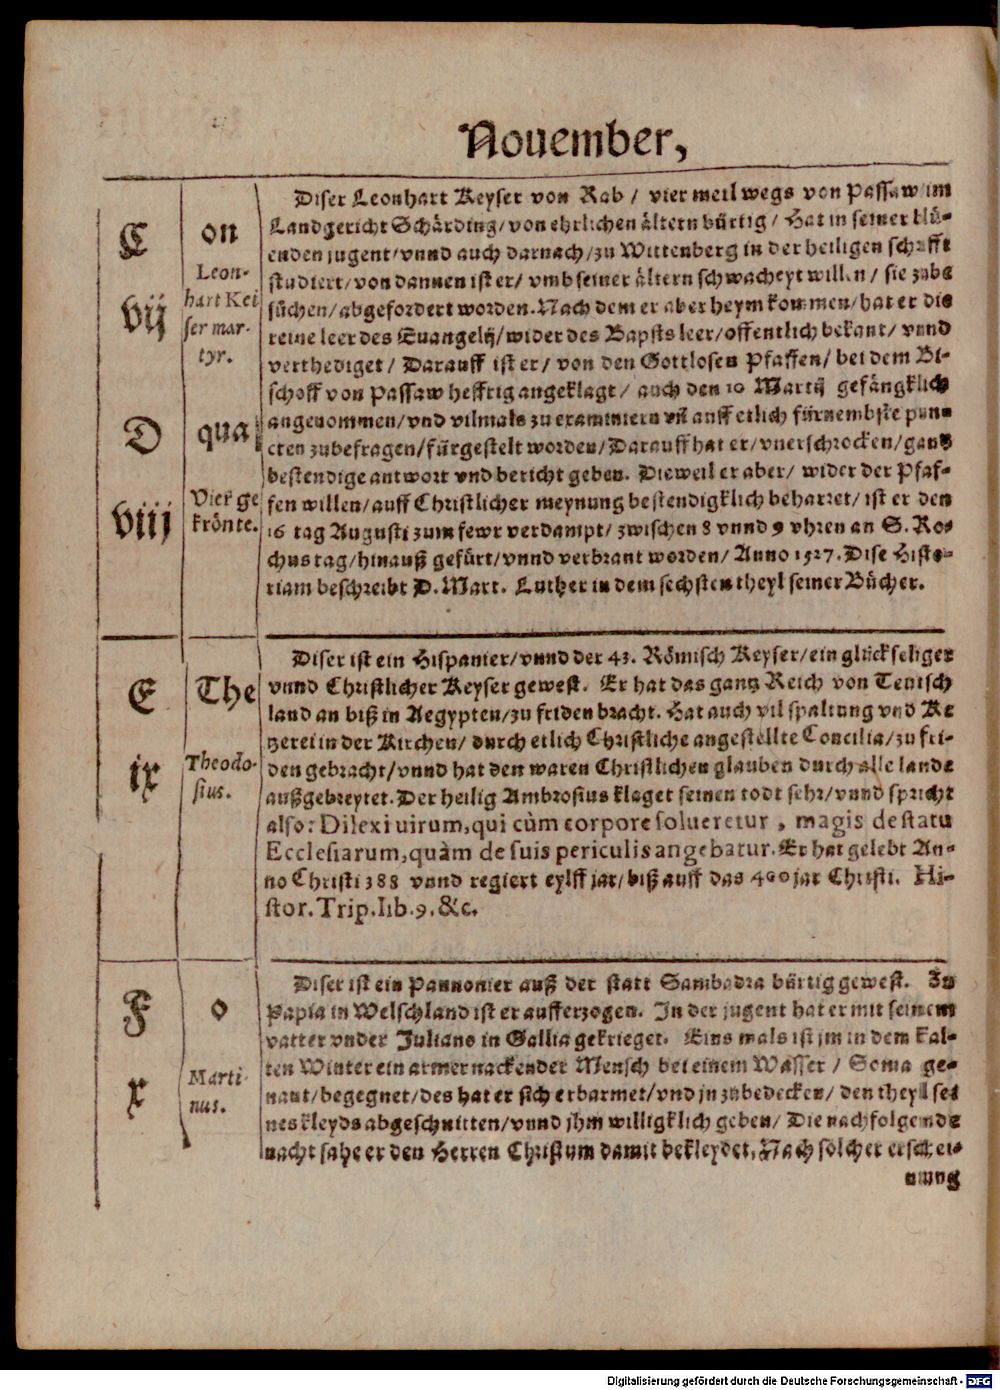 Nouember,
C
vij
on
Leon-
hart Kei
ser mar-
tyr.
D
viij
qua
Vier ge
krönte.
Diser Leonhart Keyser von Rab / vier meil wegs von Passaw im
Landgericht Schärding/von ehrlichen ältern bürtig / Hat in seiner blü-
enden jugent/vnnd auch darnach/zu Wittenberg in der heiligen schrifft
studiert/von dannen ist er/ vmb seiner ältern schwacheyt willen/ sie zubs
süchen/abgefordert worden. Nach dem er aber heym kommen/hat er die
reine leer des Euangelij/wider des Bapsts leer/offentlich bekant/ vnnd
verthediget/ Darauff ist er/ von den Gottlosen Pfaffen/ bei dem Bi-
schoff von Passaw hefftig angeklagt/ auch den 10 Martij gefängklich
angenommen/vnd vilmals zu examiniern vñ auff etlich fürnembste pun-
cten zubefragen/fürgestelt worden/Darauff hat er/vnerschrocken/gantz
bestendige antwort vnd bericht geben. Dieweil er aber/ wider der Pfaf-
fen willen/auff Christlicher meynung bestendigklich beharret/ist er den
16 tag Augusti zum fewr verdampt/zwischen 8 vnnd 9 vhren an S. Ro-
chus tag/hinauß gefürt/vnnd verbrant worden/ Anno 1527. Dise Histo-
riam beschreibt D. Mart. Luther in dem sechsten theyl seiner Bücher.
E
ix
The
Theodo-
sius.
Diser ist ein Hispanier/vnnd der 43. Römisch Keyser/ein glückseliger
vnnd Christlicher Keyser gewest. Er hat das gantz Reich von Teutsch
land an biß in Aegypten/zu friden bracht. Hat auch vil spaltung vnd Ke
tzerei in der Kirchen/ durch etlich Christliche angestellte Concilia/zu fri-
den gebracht/vnnd hat den waren Christlichen glauben durch alle lande
außgebreytet. Der heilig Ambrosius klaget seinen todt sehr/vnnd spricht
also: Dilexi uirum,qui cùm corpore solueretur, magis de statu
Ecclesiarum,quàm de suis periculis angebatur. Er hat gelebt An-
no Christi 388 vnnd regiert eylff jar/biß auff das 400 jar Christi. Hi-
stor. Trip. lib. 9. &c.
F
x
o
Marti-
nus.
Diser ist ein Pannonier auß der statt Sambadra bürtig gewest. Zu
Papia in Welschland ist er aufferzogen. In der jugent hat er mit seinem
vatter vnder Juliano in Gallia gekrieget. Eins mals ist jm in dem kal-
ten Winter ein armer nackender Mensch bei einem Wasser / Soma ge-
nant/begegnet/des hat er sich erbarmet/vnd jn zubedecken/ den theyl sei
nes kleyds abgeschnitten/vnnd jhm willigklich geben/ Die nachfolgende
nacht sahe er den Herren Christum damit bekleydet. Nach solcher erschei-
nung
Digitalisierung gefördert durch die Deutsche Forschungsgemeinschaft - DFG